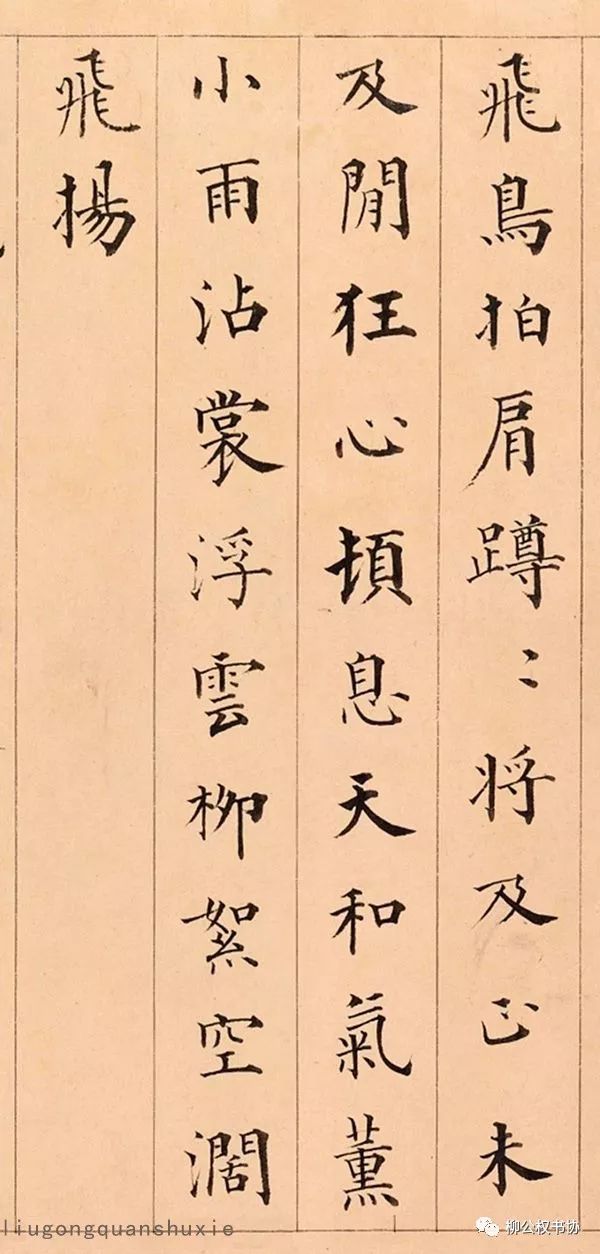 飛鳥拍肩蹲〻將及正未
及閒狂心頓息天和氣薰
小雨沾裳浮雲柳絮空濶
飛揚
liugongquanshuxie
柳公权书协